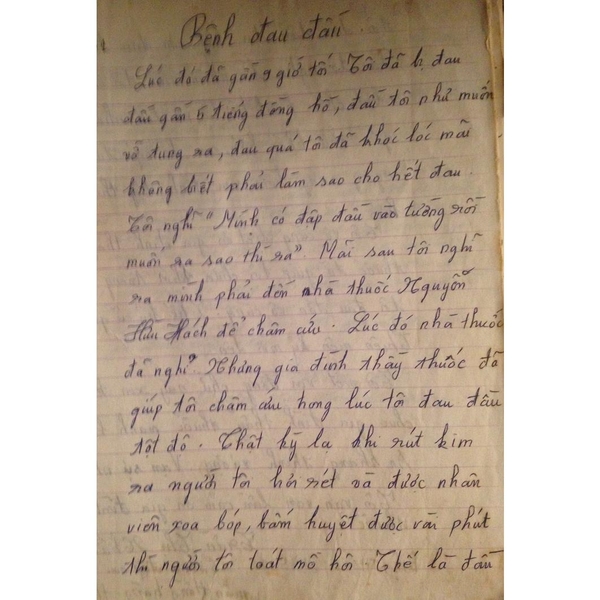 Bệnh đau đầu.
Lúc đó đã gần 9 giờ tối Tôi đã bị đau
đầu gần 5 tiếng đồng hồ, đầu tôi như muốn
vỡ tung ra, đau quá tôi đã khóc lóc mãi
không biết phải làm sao cho hết đau.
Tôi nghĩ "Mình có đập đầu vào tường rồi
muốn ra sao thì ra". Mãi sau tôi nghĩ
ra mình phải đến nhà thuốc Nguyễn
Hữu Hách để châm cứu. Lúc đó nhà thuốc
đã nghỉ. Nhưng gia đình thầy thuốc đã
giúp tôi châm cứu trong lúc tôi đau đầu
tột độ. Thật kỳ lạ khi rút kim
ra người tôi hơi rét và được nhân
viên xoa bóp, bấm huyệt được vài phút
thì người tôi toát mồ hôi. Thế là đầu